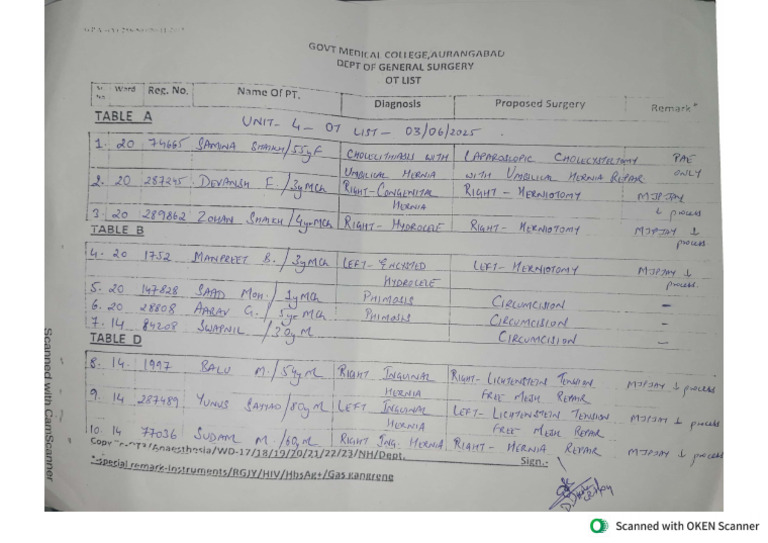 GOVT MEDICAL COLLEGE, AURANGABAD
DEPT OF GENERAL SURGERY
OT LIST
Sr. No Ward Reg. No. Name Of PT. Diagnosis Proposed Surgery Remark*
TABLE A UNIT- 4 - OT LIST - 03/06/2025.
1. 20 74665 SAMINA SHAIKH/55yF CHOLELITHIASIS WITH LAPAROSCOPIC CHOLECYSTECTOMY PAE
UMBILICAL HERNIA WITH UMBILICAL HERNIA REPAIR ONLY
2. 20 287245 DEVANSH F. /3yMCh RIGHT-CONGENITAL RIGHT- HERNIOTOMY MJPJAY
HERNIA ↓ process
3. 20 289862 ZOHAN SHAIKH/4yrMCh RIGHT- HYDROCELE RIGHT- HERNIOTOMY MJPJAY ↓
process
TABLE B
4. 20 1752 MANPREET B. /3yMCh LEFT- ENCYSTED LEFT- HERNIOTOMY MJPJAY ↓
HYDROCELE process.
5. 20 147828 SAAD MOH. /1yMCh PHIMOSIS CIRCUMCISION -
6. 20 28808 AARAV G. /5yrMCh PHIMOSIS CIRCUMCISION -
7. 14 84208 SWAPNIL /20yM CIRCUMCISION -
TABLE D
8. 14. 1997 BALU M. /54yM RIGHT INGUINAL RIGHT- LICHTENSTEIN TENSION MJPJAY ↓ process
HERNIA FREE MESH REPAIR
9. 14 287489 YUNUS /80yM LEFT INGUINAL LEFT- LICHTENSTEIN TENSION MJPJAY ↓ process
HERNIA FREE MESH REPAIR
10. 14 77036 SUDAM M. /60yM RIGHT ING. HERNIA RIGHT- HERNIA REPAIR MJPJAY ↓ process
Copy Anaesthesia/WD-17/18/19/20/21/22/23/NH/Dept. Sign.-
*special remark-Instruments/RGJY/HIV/HbsAg+/Gas Kangrene
Scanned with CamScanner
Scanned with OKEN Scanner